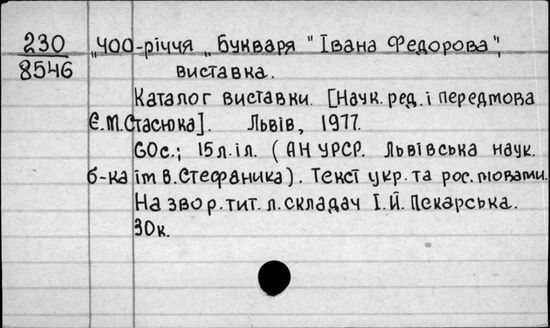 230 „400-річчя „Букваря" Івана Федорова",
8546 виставка.
Каталог виставки. [Наук. ред. і передмова
Є.М.Стасюка]. Львів, 1977.
60с.; 15л.іл. (АН УРСР. Львівська наук.
б-ка ім В.Стефаника). Текст укр. та рос. мовами.
На звор. тит. л. складач І.Й.Пекарська.
30к.